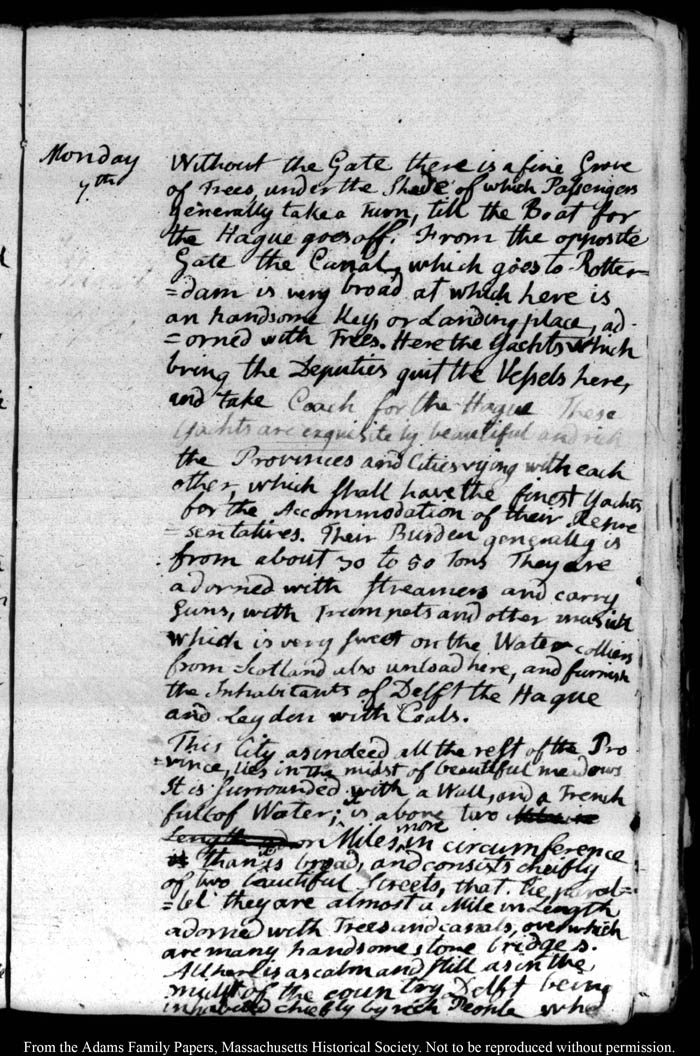 Monday
7th
Without the Gate there is a fine Grove
of Trees, under the Shade of which Passengers
generally take a Turn, till the Boat for
the Hague goes off. From the opposite
Gate the Canal, which goes to Rotter=
=dam is very broad at which here is
an handsome Key, or Landing place, ad
=orned with Trees. Here the Yachts which
bring the Deputies quit the Vessels here,
and take Coach for the Hague These
Yachts are exquisitely beautiful and rich
the Provinces and Cities vying with each
other, which shall have the finest Yachts
for the Accommodation of their Repre
=sentatives. Their Burden generally is
from about 30 to 50 Tons They are
adorned with streamers and carry
Guns, with Trumpets and other musick
which is very sweet on the Water colliers
from Scotland also unload here, and furnish
the Inhabitants of Delft the Hague
and Leyden with Coals.
This City as indeed all the rest of the Pro
=vince, lies in the midst of beautiful meadows
It is surrounded with a Wall, and a Trench
full of Water, is above two
Miles in circumference
more
than is broad, and consists cheifly
of two beautiful Streets, that lie paral=
=lel they are almost a Mile in Length
adorned with Trees and canals, over which
are many handsome stone bridges.
All here is as calm and still as in the
midst of the country Delft being
inhabited chiefly by rich People who
From the Adams Family Papers, Massachusetts Historical Society. Not to be reproduced without permission.